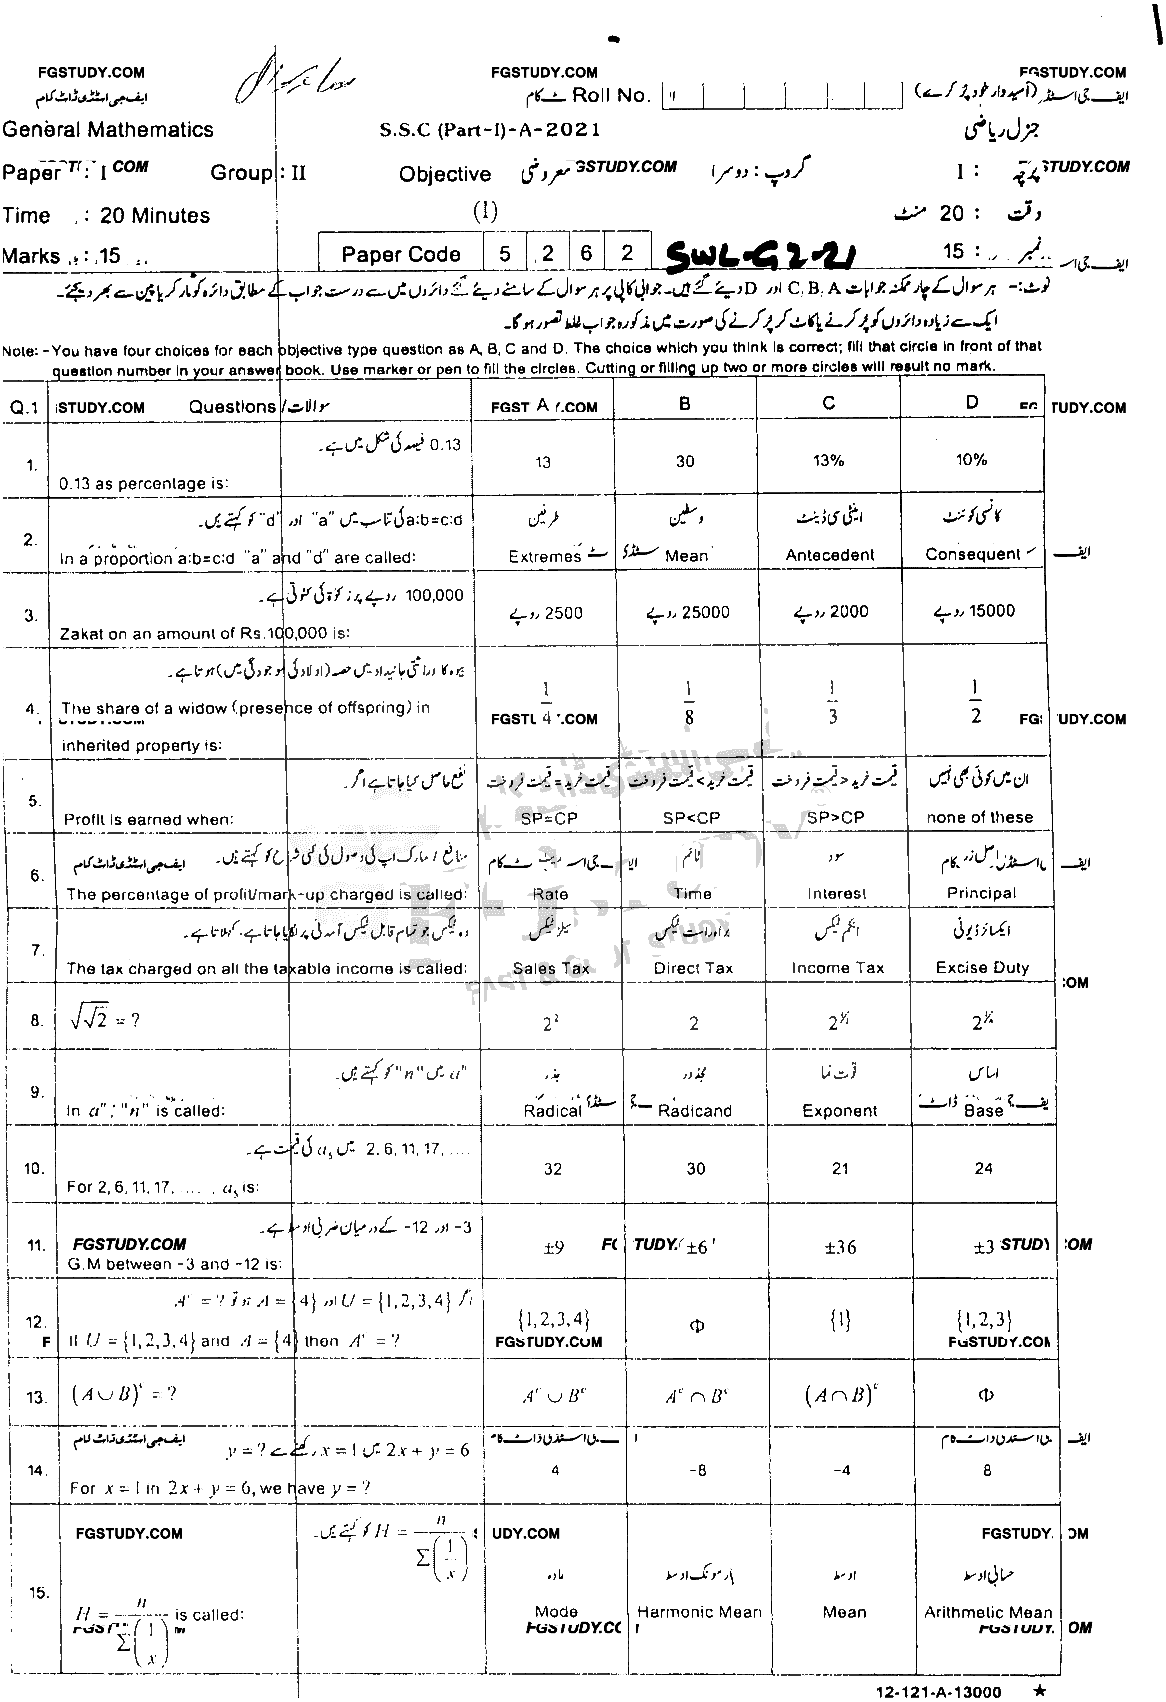 FGSTUDY.COM FGSTUDY.COM FGSTUDY.COM
ایف جی اسٹڈی ڈاٹ کام Roll No. (امیدوار خود پُر کرے)
General Mathematics S.S.C (Part-I)-A-2021 جنرل ریاضی
Paper : I Group : II Objective معروضی گروپ : دوسرا I : پرچہ
Time : 20 Minutes (I) وقت : 20 منٹ
Marks : 15 Paper Code 5 2 6 2 SWL-G2-21 15 : نمبر
نوٹ:- ہر سوال کے چار ممکنہ جوابات C, B, A اور D دیئے گئے ہیں۔ جوابی کاپی پر ہر سوال کے سامنے دیئے گئے دائروں میں سے درست جواب کے مطابق دائرہ کو مارکر یا پین سے بھر دیجئے۔
ایک سے زیادہ دائروں کو پُر کرنے یا کاٹ کر پُر کرنے کی صورت میں مذکورہ جواب غلط تصور ہو گا۔
Note: - You have four choices for each objective type question as A, B, C and D. The choice which you think is correct; fill that circle in front of that
question number in your answer book. Use marker or pen to fill the circles. Cutting or filling up two or more circles will result no mark.
Q.1 Questions / سوالات A B C D
0.13 فیصد کی شکل میں ہے۔
1. 0.13 as percentage is: 13 30 13% 10%
a:b=c:d کی تناسب میں "a" اور "d" کو کہتے ہیں۔ طرفین وسطین اینٹی سی ڈینٹ کانسی کوئنٹ
2. In a proportion a:b=c:d "a" and "d" are called: Extremes Mean Antecedent Consequent
100,000 روپے پر زکوٰۃ کی کٹوتی ہے۔
3. Zakat on an amount of Rs.100,000 is: 2500 روپے 25000 روپے 2000 روپے 15000 روپے
بیوہ کا وراثتی جائیداد میں حصہ (اولاد کی موجودگی میں) ہوتا ہے۔
4. The share of a widow (presence of offspring) in 1/4 1/8 1/3 1/2
inherited property is:
نفع حاصل کیا جاتا ہے اگر۔ قیمت خرید = قیمت فروخت قیمت خرید > قیمت فروخت قیمت خرید < قیمت فروخت ان میں کوئی بھی نہیں
5. Profit is earned when: SP=CP SP<CP SP>CP none of these
منافع / مارک اپ کی وصول کی گئی شرح کو کہتے ہیں۔ ریٹ ٹائم سود اصل زر
6. The percentage of profit/mark-up charged is called: Rate Time Interest Principal
وہ ٹیکس جو تمام قابل ٹیکس آمدنی پر لگایا جاتا ہے، کہلاتا ہے۔ سیلز ٹیکس براہ راست ٹیکس انکم ٹیکس ایکسائز ڈیوٹی
7. The tax charged on all the taxable income is called: Sales Tax Direct Tax Income Tax Excise Duty
8. √√2 = ? 2² 2
aⁿ میں "n" کو کہتے ہیں۔ جذر مجذور قوت نما اساس
9. In aⁿ; "n" is called: Radical Radicand Exponent Base
2, 6, 11, 17, .... میں a₅ کی قیمت ہے۔
10. For 2, 6, 11, 17, ...., a₅ is: 32 30 21 24
-3 اور -12 کے درمیان ضربی اوسط ہے۔
11. G.M between -3 and -12 is: ±9 ±6 ±36 ±3
اگر U = {1,2,3,4} اور A = {4} تو Aᶜ = ?
12. If U = {1,2,3,4} and A = {4} then Aᶜ = ? {1,2,3,4} Φ {1} {1,2,3}
13. (A∪B)ᶜ = ? Aᶜ ∪ Bᶜ Aᶜ ∩ Bᶜ (A∩B)ᶜ Φ
2x + y = 6 میں x = 1 رکھنے سے y = ?
14. For x = 1 in 2x + y = 6, we have y = ? 4 -8 -4 8
H = n/Σ(1/x) کو کہتے ہیں۔ عادہ ہارمونک اوسط اوسط حسابی اوسط
15. H = n/Σ(1/x) is called: Mode Harmonic Mean Mean Arithmetic Mean
12-121-A-13000 ★